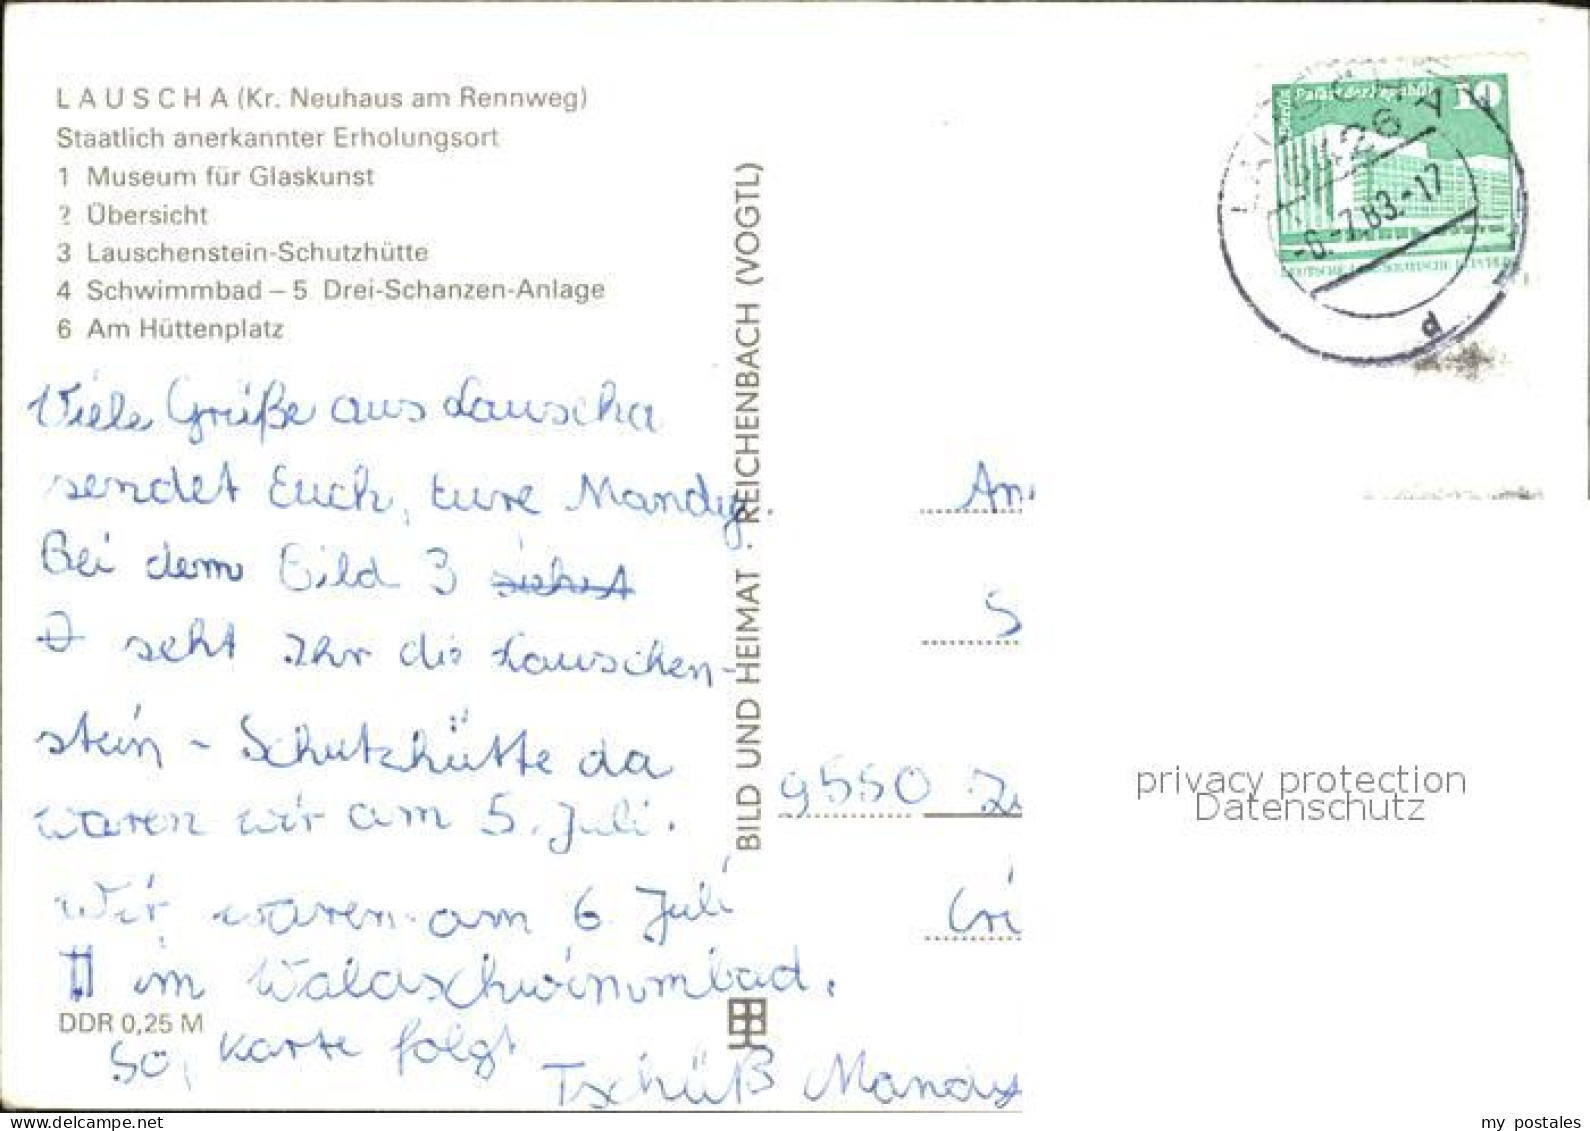 LAUSCHA (Kr. Neuhaus am Rennweg)
Staatlich anerkannter Erholungsort
1 Museum für Glaskunst
2 Übersicht
3 Lauschenstein-Schutzhütte
4 Schwimmbad – 5 Drei-Schanzen-Anlage
6 Am Hüttenplatz
Viele Grüße aus Lauscha
sendet Euch, eure Mandy.
Bei dem Bild 3 siehst
seht Ihr die Lauschen-
stein - Schutzhütte da
waren wir am 5. Juli.
Wir waren am 6. Juli
im Waldschwimmbad.
DDR 0,25 M
So, Karte folgt
Tschüß Mandy
BILD UND HEIMAT · REICHENBACH (VOGTL)
Berlin Palast der Republik 10
LAUSCHA
6426
-6.-7.83.-17
d
An
S
9550
Cri
privacy protection
Datenschutz
my postales